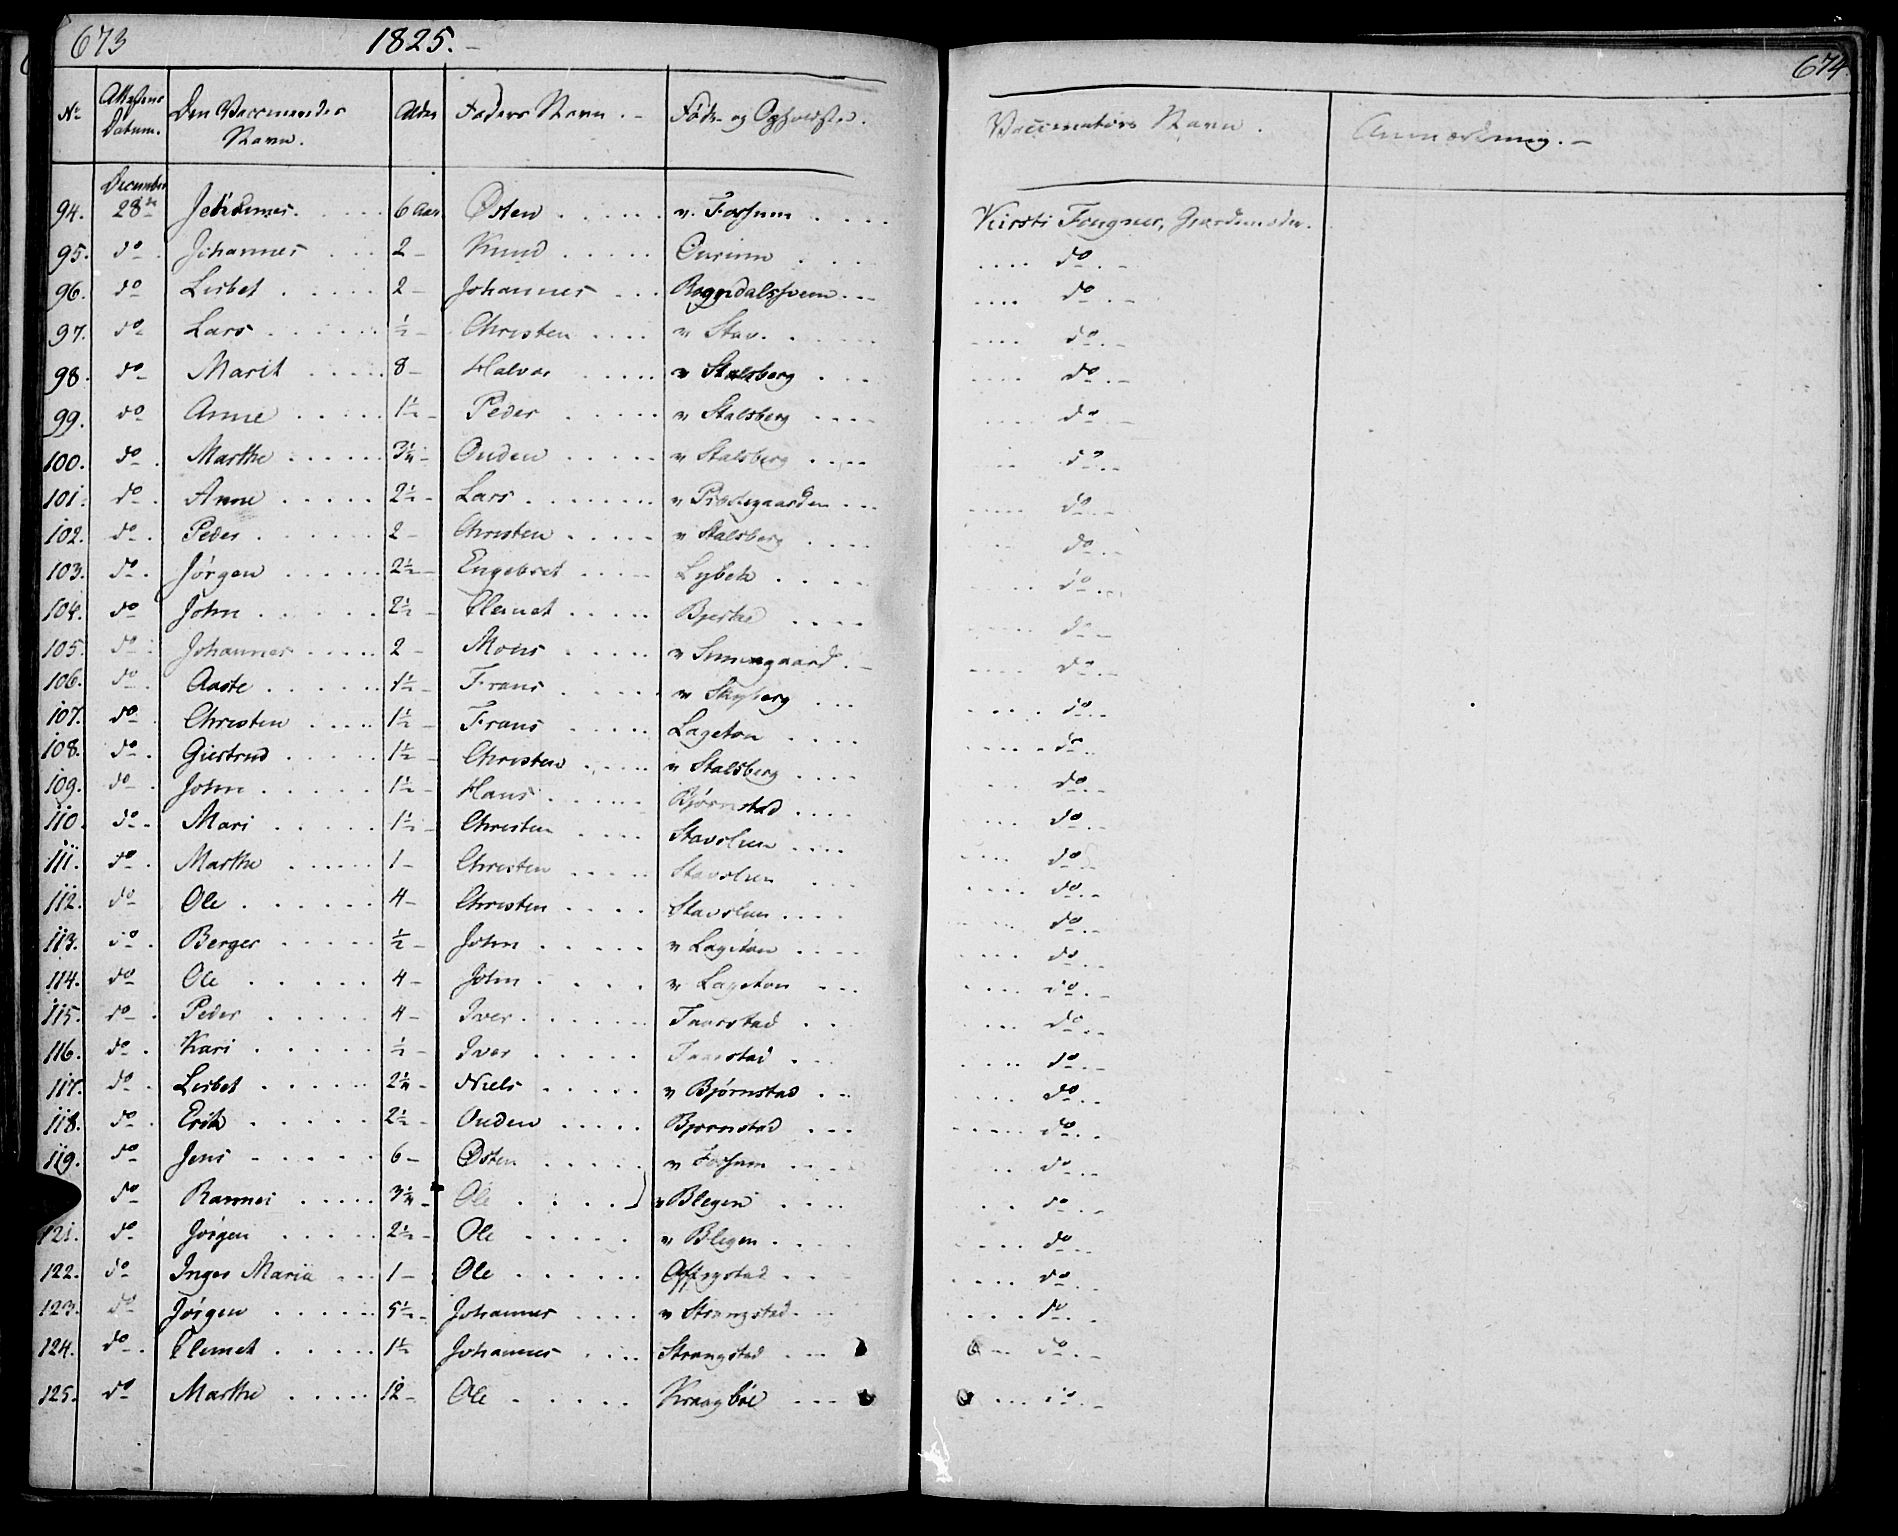 673 1825.-
674
No Attestens Datum. Den Vaccineredes Navn. Alder Faders Navn.- Føde- og Opholdsted. Vaccinators Navn. Anmærkning.-
December
94. 28de . . . . . 6 Aar Østen . . . . . v. Forsum . . . . Kirsti Fougner, Giordemoder.
95. do . Johannes . . . 2 - Knud . . . . . . . . . .... do . -
96. do Lisbet . . . . . 2 - Johannes . . . . . . .... do . -
97. do Lars . . . . . . ½ - Christen . . . . v Stav. . . . . .... do . -
98. do - Marit . . . . . 8 - Halvor . . . . . v Stalsberg . . . .... do . -
99. do Anne . . . . . 1½ - Peder . . . . . v Stalsberg . . . . .... do . -
100. do . Marthe . . . . . 3¼ - Ouden . . . . . v Stalsberg . . . . .... do . -
101. do . Anne . . . . . 2½ - Lars . . . . . . . v Præstegaarden . . . ..... do . -
102. do . Peder . . . . . . 2 - Christen . . . . . v Stalsberg . . . . .... do . -
103. do . Jørgen . . . . . 2½ - Engebret . . . . . Lybek . . . . .... do . . .
104. do John . . . . . . 2½ - Clemet . . . . . Bjerke . . . . ..... do -
105. do . Johannes . . . . . 2 - Mons . . . . . v . - .... do . -
106. do . Aaste . . . . . . 1½ - Frans . . . . . v . . . .... do . -
107. do Christen . . . . . 1½ - Frans . . . . . Lageton . . . . .... do . -
108. do . Giertrud . . . . . 1½ - Christen . . . . . v Stalsberg . . . . ..... do . .
109. do John . . . . . . 1½ - Hans . . . . . Bjørnstad . . . . .... do . -
110. do . Mari . . . . . 1½ - Christen . . . . Stavslien . . . . .... do . -
111. do . Marthe . . . . . 1 - Christen . . . . . Stavslien . . . .... do . -
112. do Ole . . . . . . . 4 - Christen . . . . Stavslien . . . . .... do . -
113. do . Berger . . . . . ½ - John . . . . . v Lageton . . . . .... do . -
114. do Ole . . . . . 4 - John . . . . . v Lageton . . . .... do . -
115. do . Peder . . . . . 4 - Iver . . . . . . Taarstad . . .... do . -
116. do . Kari . . . . . ½ - Iver . . . . . Taarstad . . . .... do . -
117. do . Lisbet . . . . . 2¼ - Niels . . . . . v Bjørnstad . . . .... do . -
118. do . Erik . . . . . 2½ - Ouden . . . . . Bjørnstad . . . ..... do . .
119. do Jens - . . . . 6 - Østen . . . . . v Forsum . . . . .. do . -
do Rannei . . . . . 3¼ - Ole . . . . v Blegen . . . . ... do . -
121. do Jørgen . . . . . 2½ - Ole . . . . . v Blegen . . . . .... do . .
122. do Inger Maria . . . 1 - Ole . . . . . . Offigstad . . . .... do .
123. do Jørgen . . . . . 5½ - Johannes . . . . v Strangstad . . . .... do . -
124. do . Clemet . . . . . 1½ Johannes . . . . Strangstad . . . ... do . -
125. do Marthe . . . . . 12 - Ole . . . . . Kraagbøl . . . .... do . -